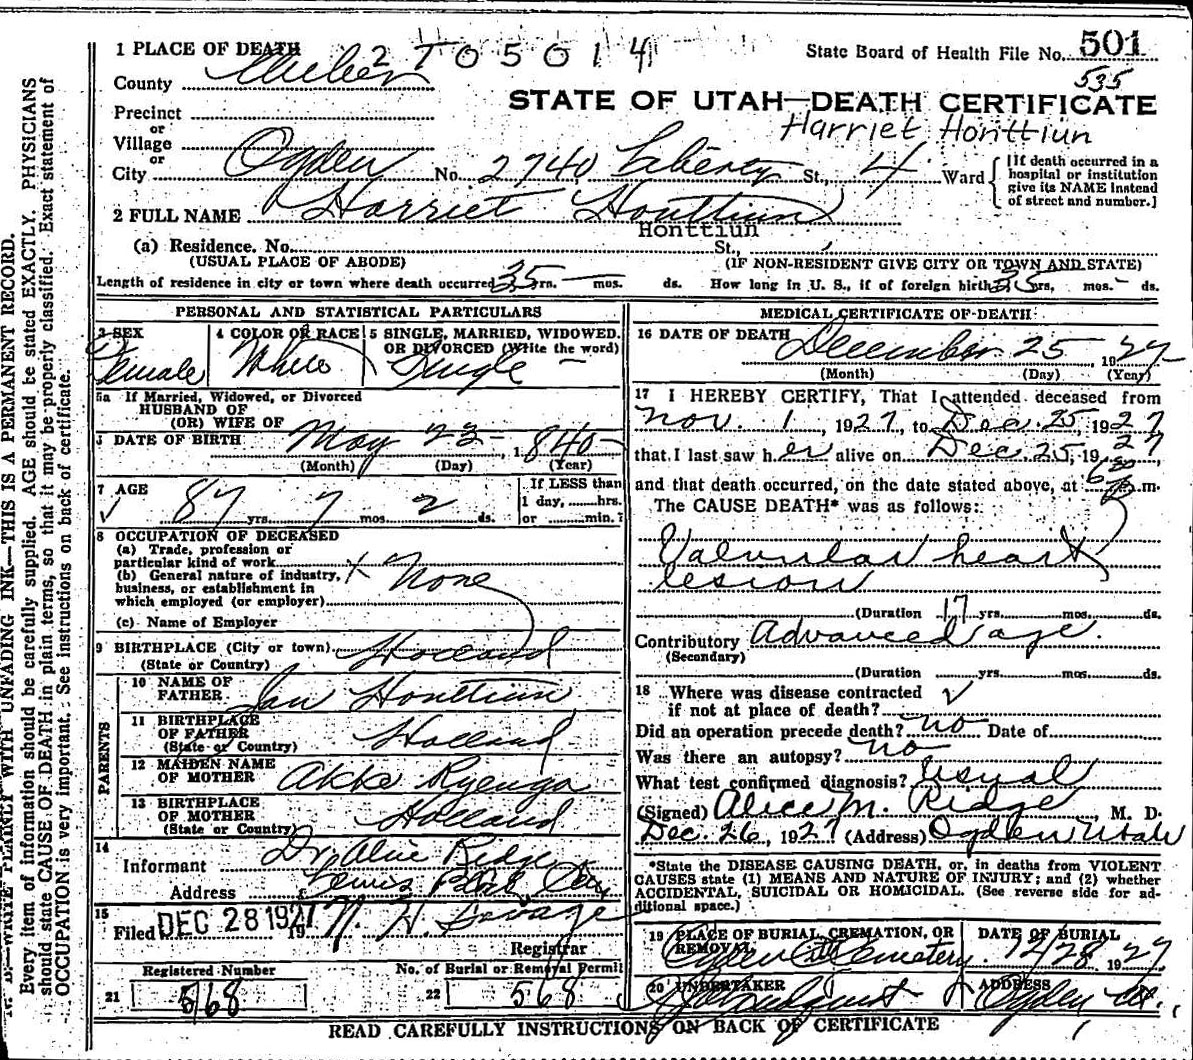 1 PLACE OF DEATH 2 T 0 5 0 1 4 State Board of Health File No. 501
County Weber 535
STATE OF UTAH—DEATH CERTIFICATE
Precinct
or Harriet Honttiun
Village
or
City Ogden No. 2740 Liberty St., 4 Ward {[If death occurred in a hospital or institution give its NAME instead of street and number.]
2 FULL NAME Harriet Honttiun
Honttiun
(a) Residence. No. St.,
(USUAL PLACE OF ABODE) (IF NON-RESIDENT GIVE CITY OR TOWN AND STATE)
Length of residence in city or town where death occurred 35 yrs. — mos. ds. How long in U. S., if of foreign birth 35 yrs, mos. — ds.
PERSONAL AND STATISTICAL PARTICULARS
3 SEX 4 COLOR OR RACE 5 SINGLE, MARRIED, WIDOWED.
OR DIVORCED (Write the word)
Female White Single
5a If Married, Widowed, or Divorced
HUSBAND OF
(OR) WIFE OF
DATE OF BIRTH May 23 - , 1840
(Month) (Day) (Year)
7 AGE If LESS than
1 day, hrs.
87 yrs. 7 mos. 2 ds. or min.?
8 OCCUPATION OF DECEASED
(a) Trade, profession or
particular kind of work
(b) General nature of industry, x None
business, or establishment in
which employed (or employer)
(c) Name of Employer
9 BIRTHPLACE (City or town) Holland
(State or Country)
PARENTS
10 NAME OF
FATHER Jan Honttiun
11 BIRTHPLACE
OF FATHER Holland
(State or Country)
12 MAIDEN NAME
OF MOTHER Akke Ryenga
13 BIRTHPLACE
OF MOTHER Holland
(State or Country)
14
Informant Dr. Alice Ridge
Address Lewis Park City
15
Filed DEC 28 1927 N. H. Savage
Registrar
Registered Number No. of Burial or Removal Permit
21 568 22 568
MEDICAL CERTIFICATE OF DEATH
16 DATE OF DEATH December 25 1927
(Month) (Day) (Year)
17 I HEREBY CERTIFY, That I attended deceased from
Nov. 1, 1927, to Dec. 25, 1927
that I last saw her alive on Dec 25, 1927,
and that death occurred, on the date stated above, at 6 m.
The CAUSE DEATH* was as follows:
Valvular heart
lesion
(Duration 17 yrs. mos. ds.
Contributory Advanced age.
(Secondary)
(Duration yrs. mos. ds.
18 Where was disease contracted
if not at place of death?
Did an operation precede death? no Date of
Was there an autopsy? no
What test confirmed diagnosis? Usual
(Signed) Alice M. Ridge, M. D.
Dec. 26, 1927 (Address) Ogden Utah
*State the DISEASE CAUSING DEATH, or, in deaths from VIOLENT
CAUSES state (1) MEANS AND NATURE OF INJURY; and (2) whether
ACCIDENTAL, SUICIDAL OR HOMICIDAL. (See reverse side for ad-
ditional space.)
19 PLACE OF BURIAL, CREMATION, OR REMOVAL DATE OF BURIAL
Ogden City Cemetery. 12/28 1927
20 UNDERTAKER ADDRESS
Ogden Ut.
READ CAREFULLY INSTRUCTIONS ON BACK OF CERTIFICATE
WRITE PLAINLY WITH UNFADING INK—THIS IS A PERMANENT RECORD.
Every item of information should be carefully supplied. AGE should be stated EXACTLY. PHYSICIANS
should state CAUSE OF DEATH in plain terms, so that it may be properly classified. Exact statement of
OCCUPATION is very important. See instructions on back of certificate.